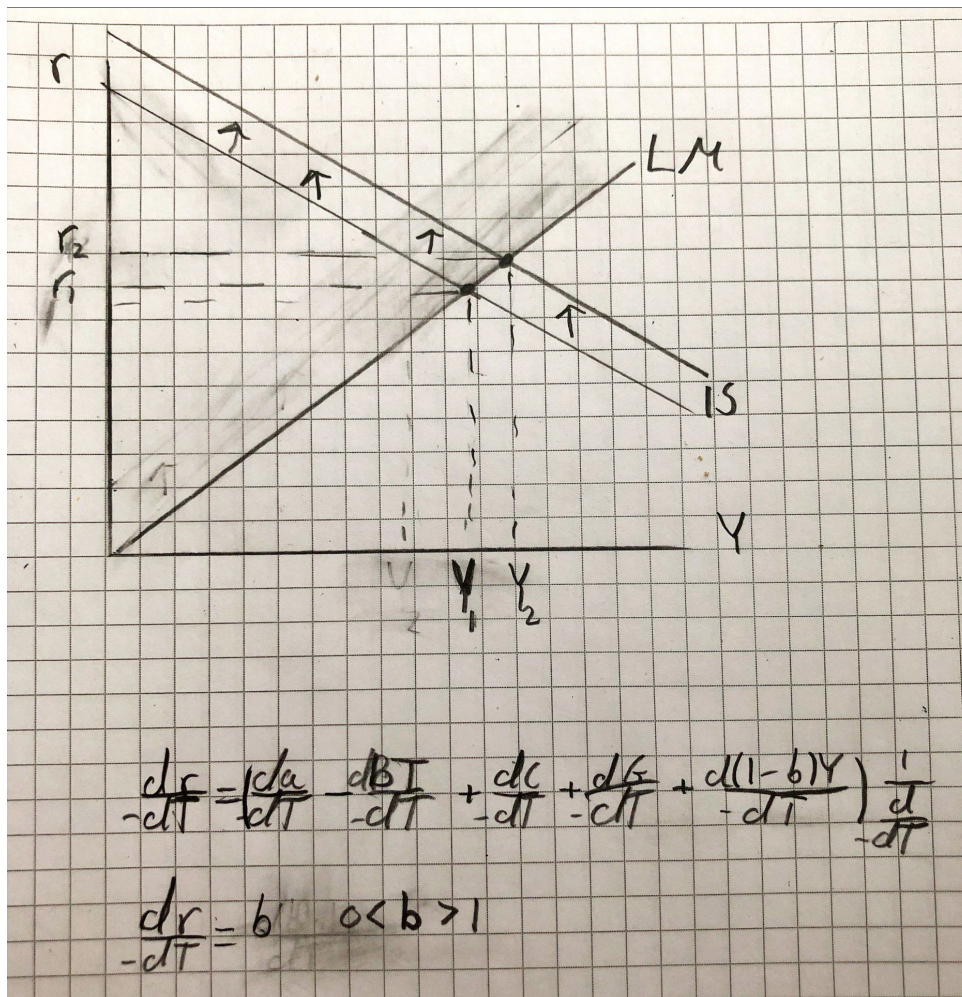 r
LM
r₂
r₁
IS
Y
Y₁ Y₂
2
dr/-dT = (da/-dT - dBT/-dT + dC/-dT + dG/-dT + d(1-b)Y/-dT) 1/(d/-dT)
dr/-dT = b 0<b>1